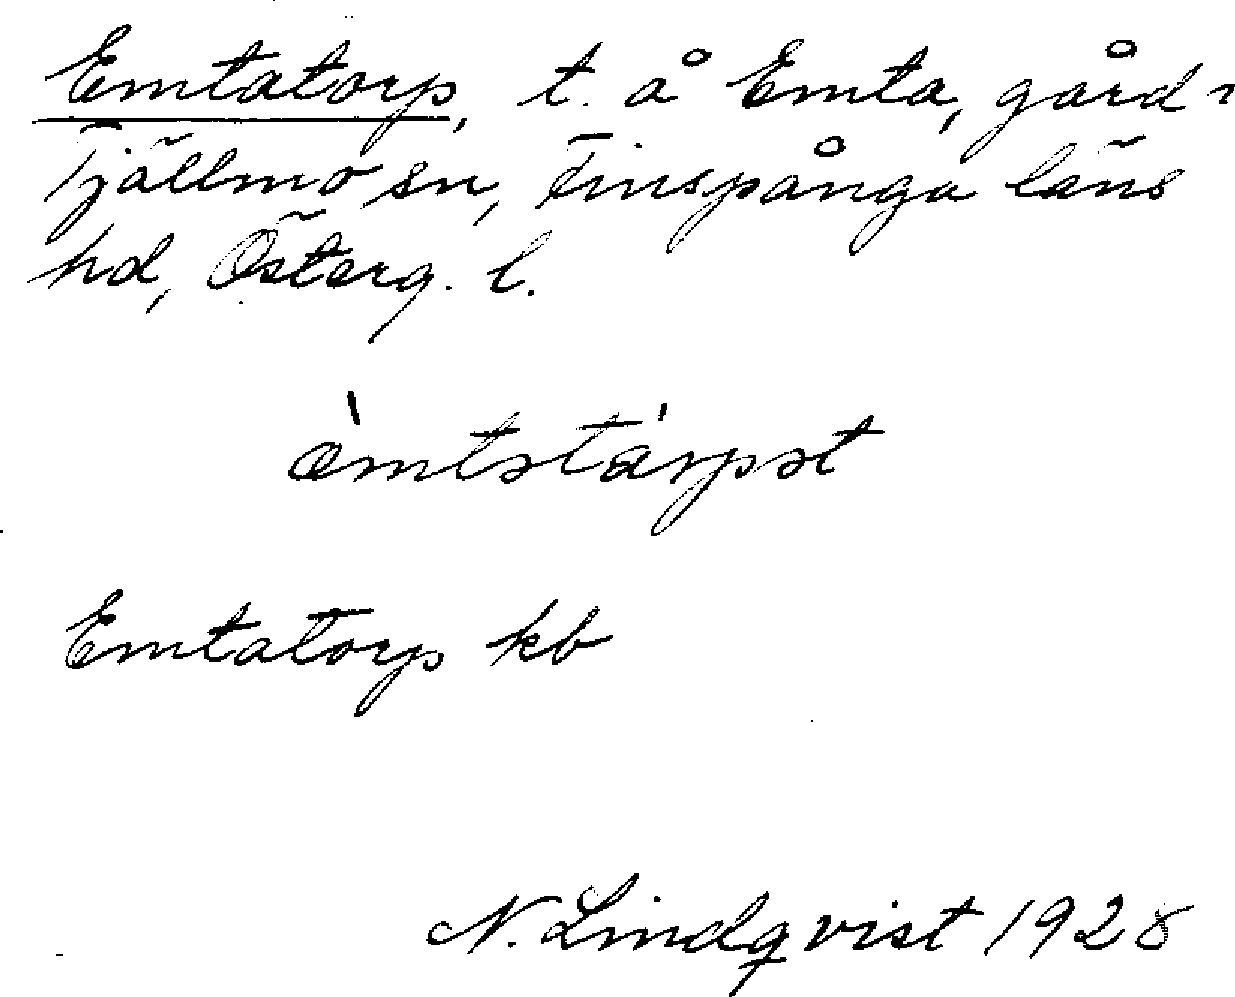 Emtatorp, t. å Emta, gård i
Tjällmo sn, Finspånga läns
hd, Österg. l.
æ̀mtatárpət
Emtatorp kb
N. Lindqvist 1928